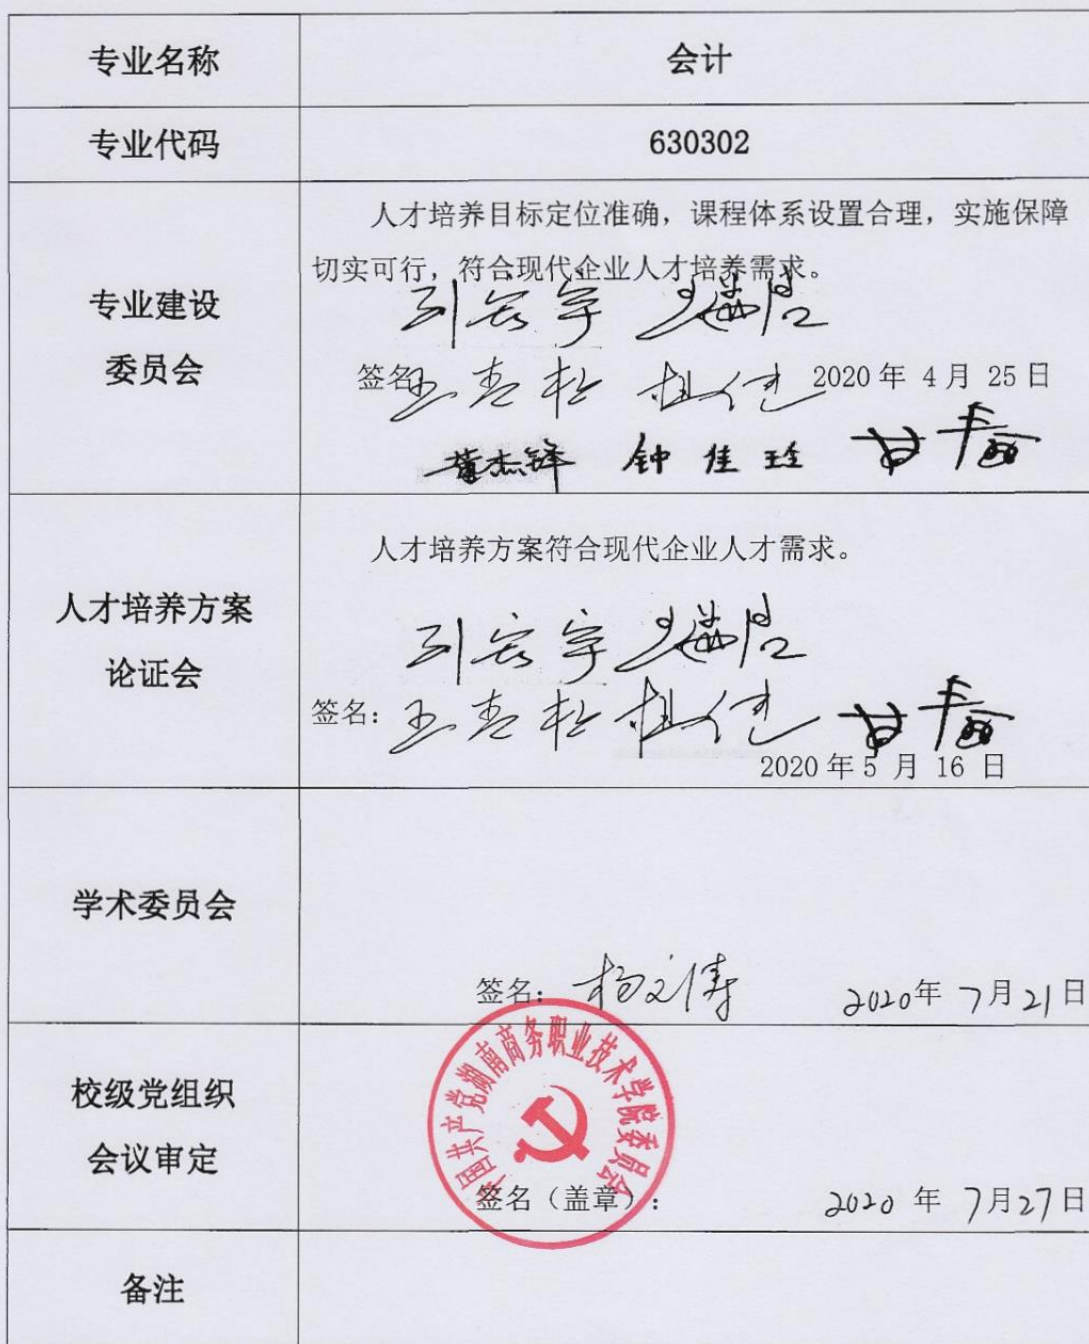 专业名称
会计
专业代码
630302
专业建设
委员会
人才培养目标定位准确，课程体系设置合理，实施保障
切实可行，符合现代企业人才培养需求。
签名
2020年 4月 25日
董杰锋 钟佳玲
人才培养方案
论证会
人才培养方案符合现代企业人才需求。
签名：
2020年5 月 16 日
学术委员会
签名： 杨文涛 2020年 7月21日
校级党组织
会议审定
中国共产党湖南商务职业技术学院委员会
签名（盖章）： 2020 年 7月27日
备注